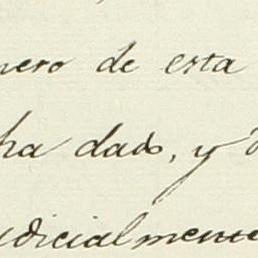 nero de esta
ha dado, y
udicialmente